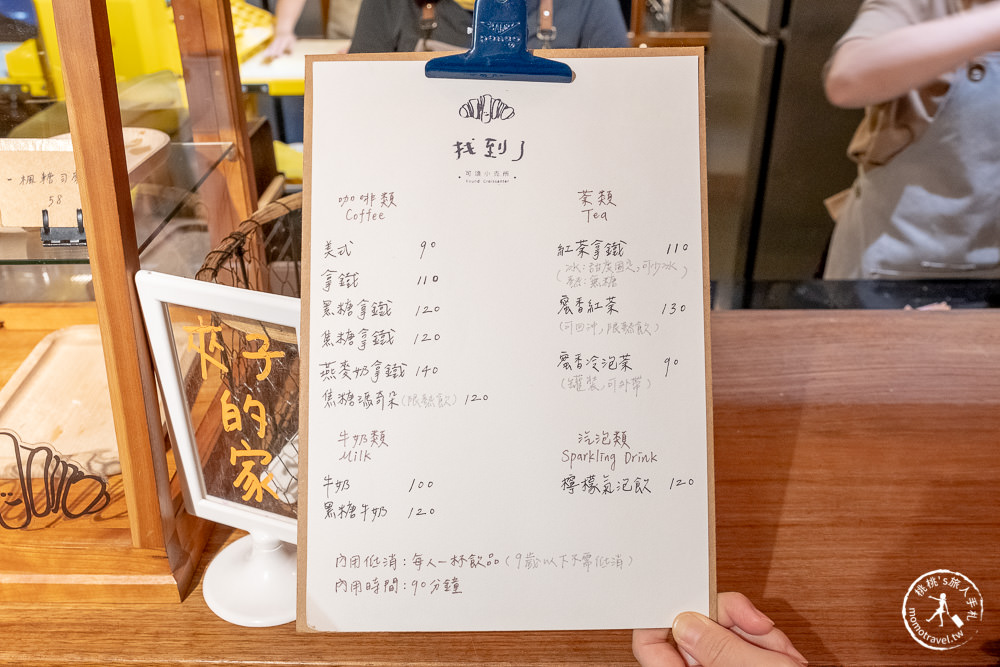 找到了
可頌小売所
Found Croissanter
咖啡類
Coffee
美式 90
拿鐵 110
黑糖拿鐵 120
焦糖拿鐵 120
燕麥奶拿鐵 140
焦糖瑪奇朵(限熱飲) 120
牛奶類
Milk
牛奶 100
黑糖牛奶 120
茶類
Tea
紅茶拿鐵 110
(冰:甜度固定,可少冰
熱:無糖)
蜜香紅茶 130
(可回沖,限熱飲)
蜜香冷泡茶 90
(罐裝,可外帶)
汽泡類
Sparkling Drink
檸檬氣泡飲 120
內用低消:每人一杯飲品(9歲以下不需低消)
內用時間:90分鐘
楓糖可
58
夾子
的
家
桃桃's旅人手札
momotravel.tw